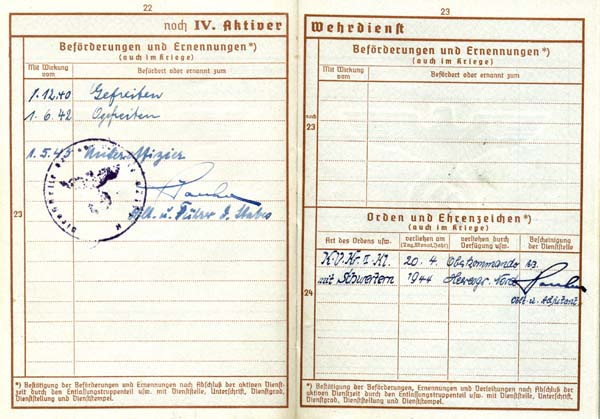 22
noch IV. Aktiver
Beförderungen und Ernennungen*)
(auch im Kriege)
Mit Wirkung vom
Befördert oder ernannt zum
1.12.40 Gefreiten
1.6.42 Ogefreiten
1.5.43 Unteroffizier
u. Führer d. Stabes
23
*) Bestätigung der Beförderungen und Ernennungen nach Abschluß der aktiven Dienst-
zeit durch den Entlassungstruppenteil usw. mit Dienststelle, Unterschrift, Dienstgrad,
Dienststellung und Dienststempel.
23
Wehrdienst
Beförderungen und Ernennungen*)
(auch im Kriege)
Mit Wirkung vom
Befördert oder ernannt zum
noch
23
Orden und Ehrenzeichen*)
(auch im Kriege)
Art des Ordens usw.
verliehen am
(Tag, Monat, Jahr)
verliehen durch
Verfügung usw.
Bescheinigung
der Dienststelle
K.V.Kr. II. Kl. 20.4. Oberkommando
mit Schwertern 1944 Heeresgr. Nord
Oblt. u. Adjutant
24
*) Bestätigung der Beförderungen, Ernennungen und Verleihungen nach Abschluß der
aktiven Dienstzeit durch den Entlassungstruppenteil usw. mit Dienststelle, Unterschrift,
Dienstgrad, Dienststellung und Dienststempel.